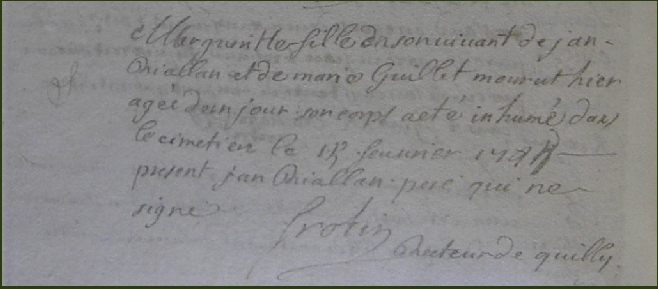 Marguerittte fille en son vivant de jan
Chiallan et de marie Guillet mourut hier
agee dun jour son corps a eté inhumé dans
le cimetiere le fevrier
present jan Chiallan pere qui ne
signe
Recteur de quilly